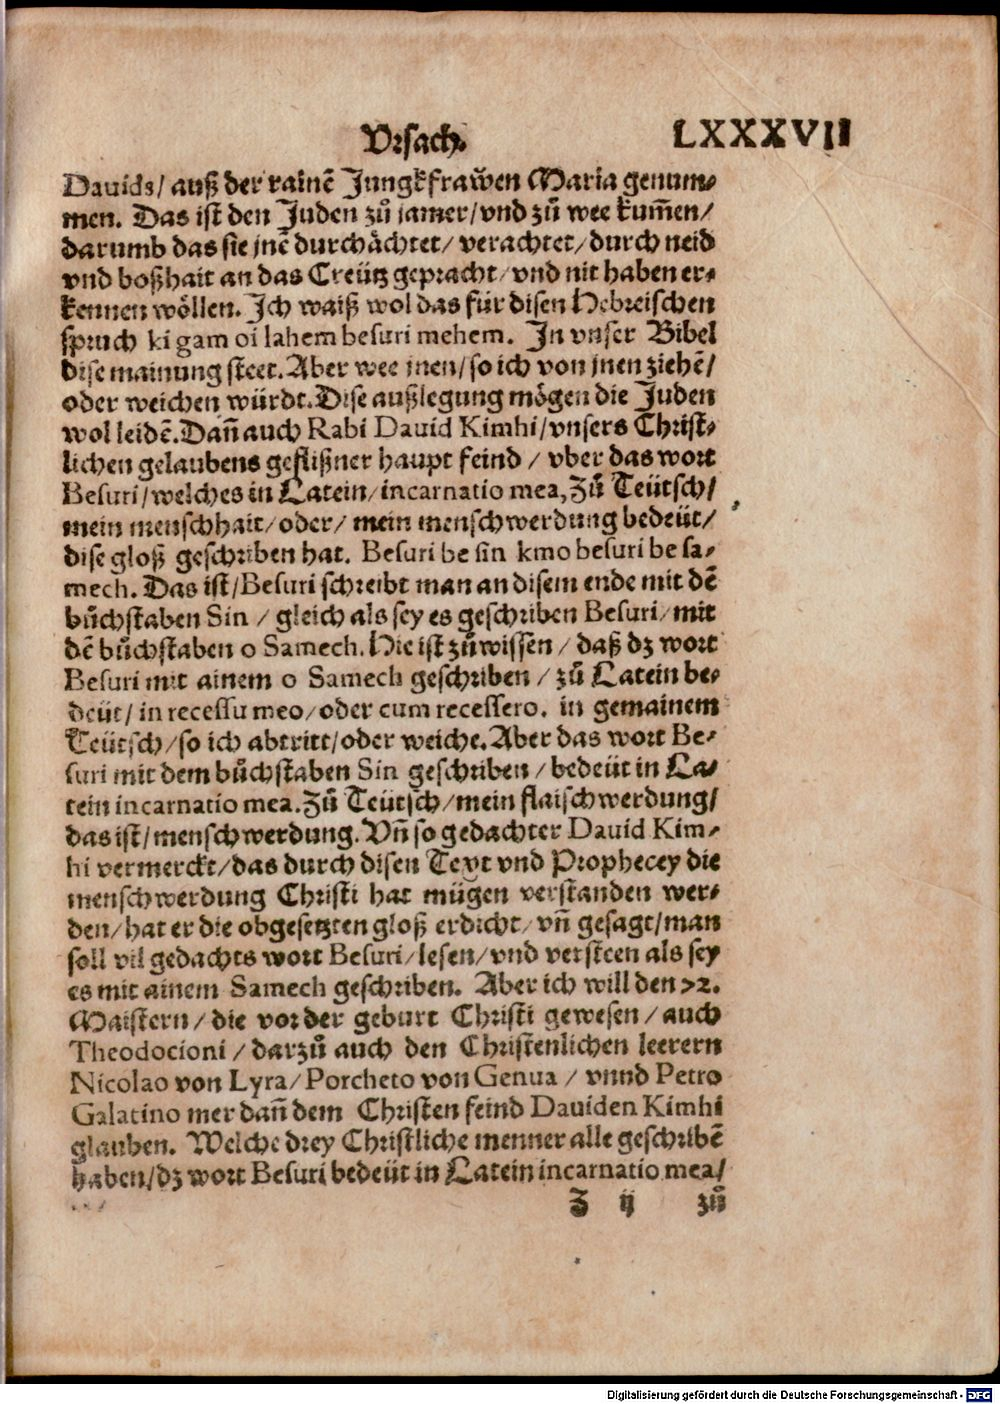 Vrsach.
LXXXVII
Dauids/ auß der rainē Jungkfraw̌en Maria genum⸗
men. Das ist den Juden zů jamer/vnd zů wee kum̄en/
darumb das sie jnē durchächtet/ verachtet/durch neid
vnd boßhait an das Creütz gepracht/vnd nit haben er⸗
kennen wöllen. Ich waiß wol das für disen Hebreischen
spruch ki gam oi lahem besuri mehem. In vnser Bibel
dise mainung steet. Aber wee jnen/so ich von jnen ziehē/
oder weichen würdt. Dise außlegung mögen die Juden
wol leidē. Dañ auch Rabi Dauid Kimhi/vnsers Christ⸗
lichen gelaubens geflißner haupt feind / vber das wort
Besuri/welches in Latein/incarnatio mea, Zů Teütsch/
mein menschhait/oder/ mein menschwerdung bedeüt/
dise gloß geschriben hat. Besuri be sin kmo besuri be sa⸗
mech. Das ist/Besuri schreibt man an disem ende mit dē
bůchstaben Sin / gleich als sey es geschriben Besuri/mit
dē bůchstaben o Samech. Hie ist zůwissen / daß dz wort
Besuri mit ainem o Samech geschriben / zů Latein be⸗
deüt/ in recessu meo/oder cum recessero. in gemainem
Teütsch/so ich abtritt/oder weiche. Aber das wort Be⸗
suri mit dem bůchstaben Sin geschriben / bedeüt in La⸗
tein incarnatio mea. Zů Teütsch/mein flaischwerdung/
das ist/menschwerdung. Vñ so gedachter Dauid Kim⸗
hi vermerckt/das durch disen Text vnd Prophecey die
menschwerdung Christi hat mügen verstanden wer⸗
den/hat er die obgesetzten gloß erdicht/vñ gesagt/man
soll vil gedachts wort Besuri/lesen/vnd versteen als sey
es mit ainem Samech geschriben. Aber ich will den 72.
Maistern / die vor der geburt Christi gewesen / auch
Theodocioni / darzů auch den Christenlichen leerern
Nicolao von Lyra/Porcheto von Genua / vnnd Petro
Galatino mer dañ dem Christen feind Dauiden Kimhi
glauben. Welche drey Christliche menner alle geschribē
haben/dz wort Besuri bedeüt in Latein incarnatio mea/
Z ij zů
Digitalisierung gefördert durch die Deutsche Forschungsgemeinschaft - DFG